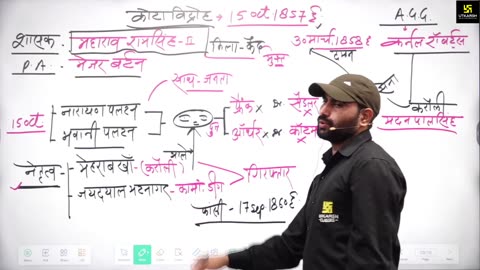 कोटा विद्रोह → 15 Oct 1857 ई.
A.G.G.
शासक - महाराव रामसिंह-II
किला - कैद
मुक्त
30 मार्च, 1858 ई
दमन
कर्नल रॉबर्ट्स
P.A. - मेजर बर्टन
करौली
मदनपालसिंह
साथ - जनता
15 Oct
नारायण पलटन
भवानी पलटन
फ्रैंक ×
सैडलर
×
ऑर्थर ×
कॉटम
×
भाले
नेतृत्व
मेहराब खाँ - (करौली)
जयदयाल भटनागर - कामां. डीग
गिरफ्तार
फांसी - 17 Sep 1860 ई.
UTKARSH
UTKARSH
CLASSES